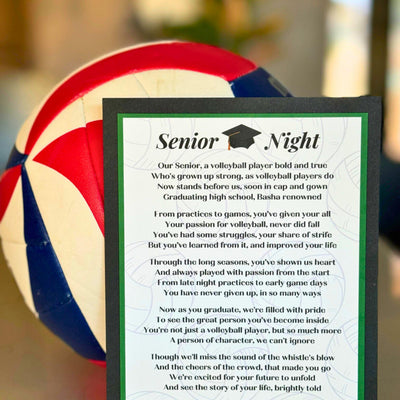 Senior Night
Our Senior, a volleyball player bold and true
Who's grown up strong, as volleyball players do
Now stands before us, soon in cap and gown
Graduating high school, Basha renowned
From practices to games, you've given your all
Your passion for volleyball, never did fall
You've had some struggles, your share of strife
But you've learned from it, and improved your life
Through the long seasons, you've shown us heart
And always played with passion from the start
From late night practices to early game days
You have never given up, in so many ways
Now as you graduate, we're filled with pride
To see the great person you've become inside
You're not just a volleyball player, but so much more
A person of character, we can't ignore
Though we'll miss the sound of the whistle's blow
And the cheers of the crowd, that made you go
We're excited for your future to unfold
And see the story of your life, brightly told